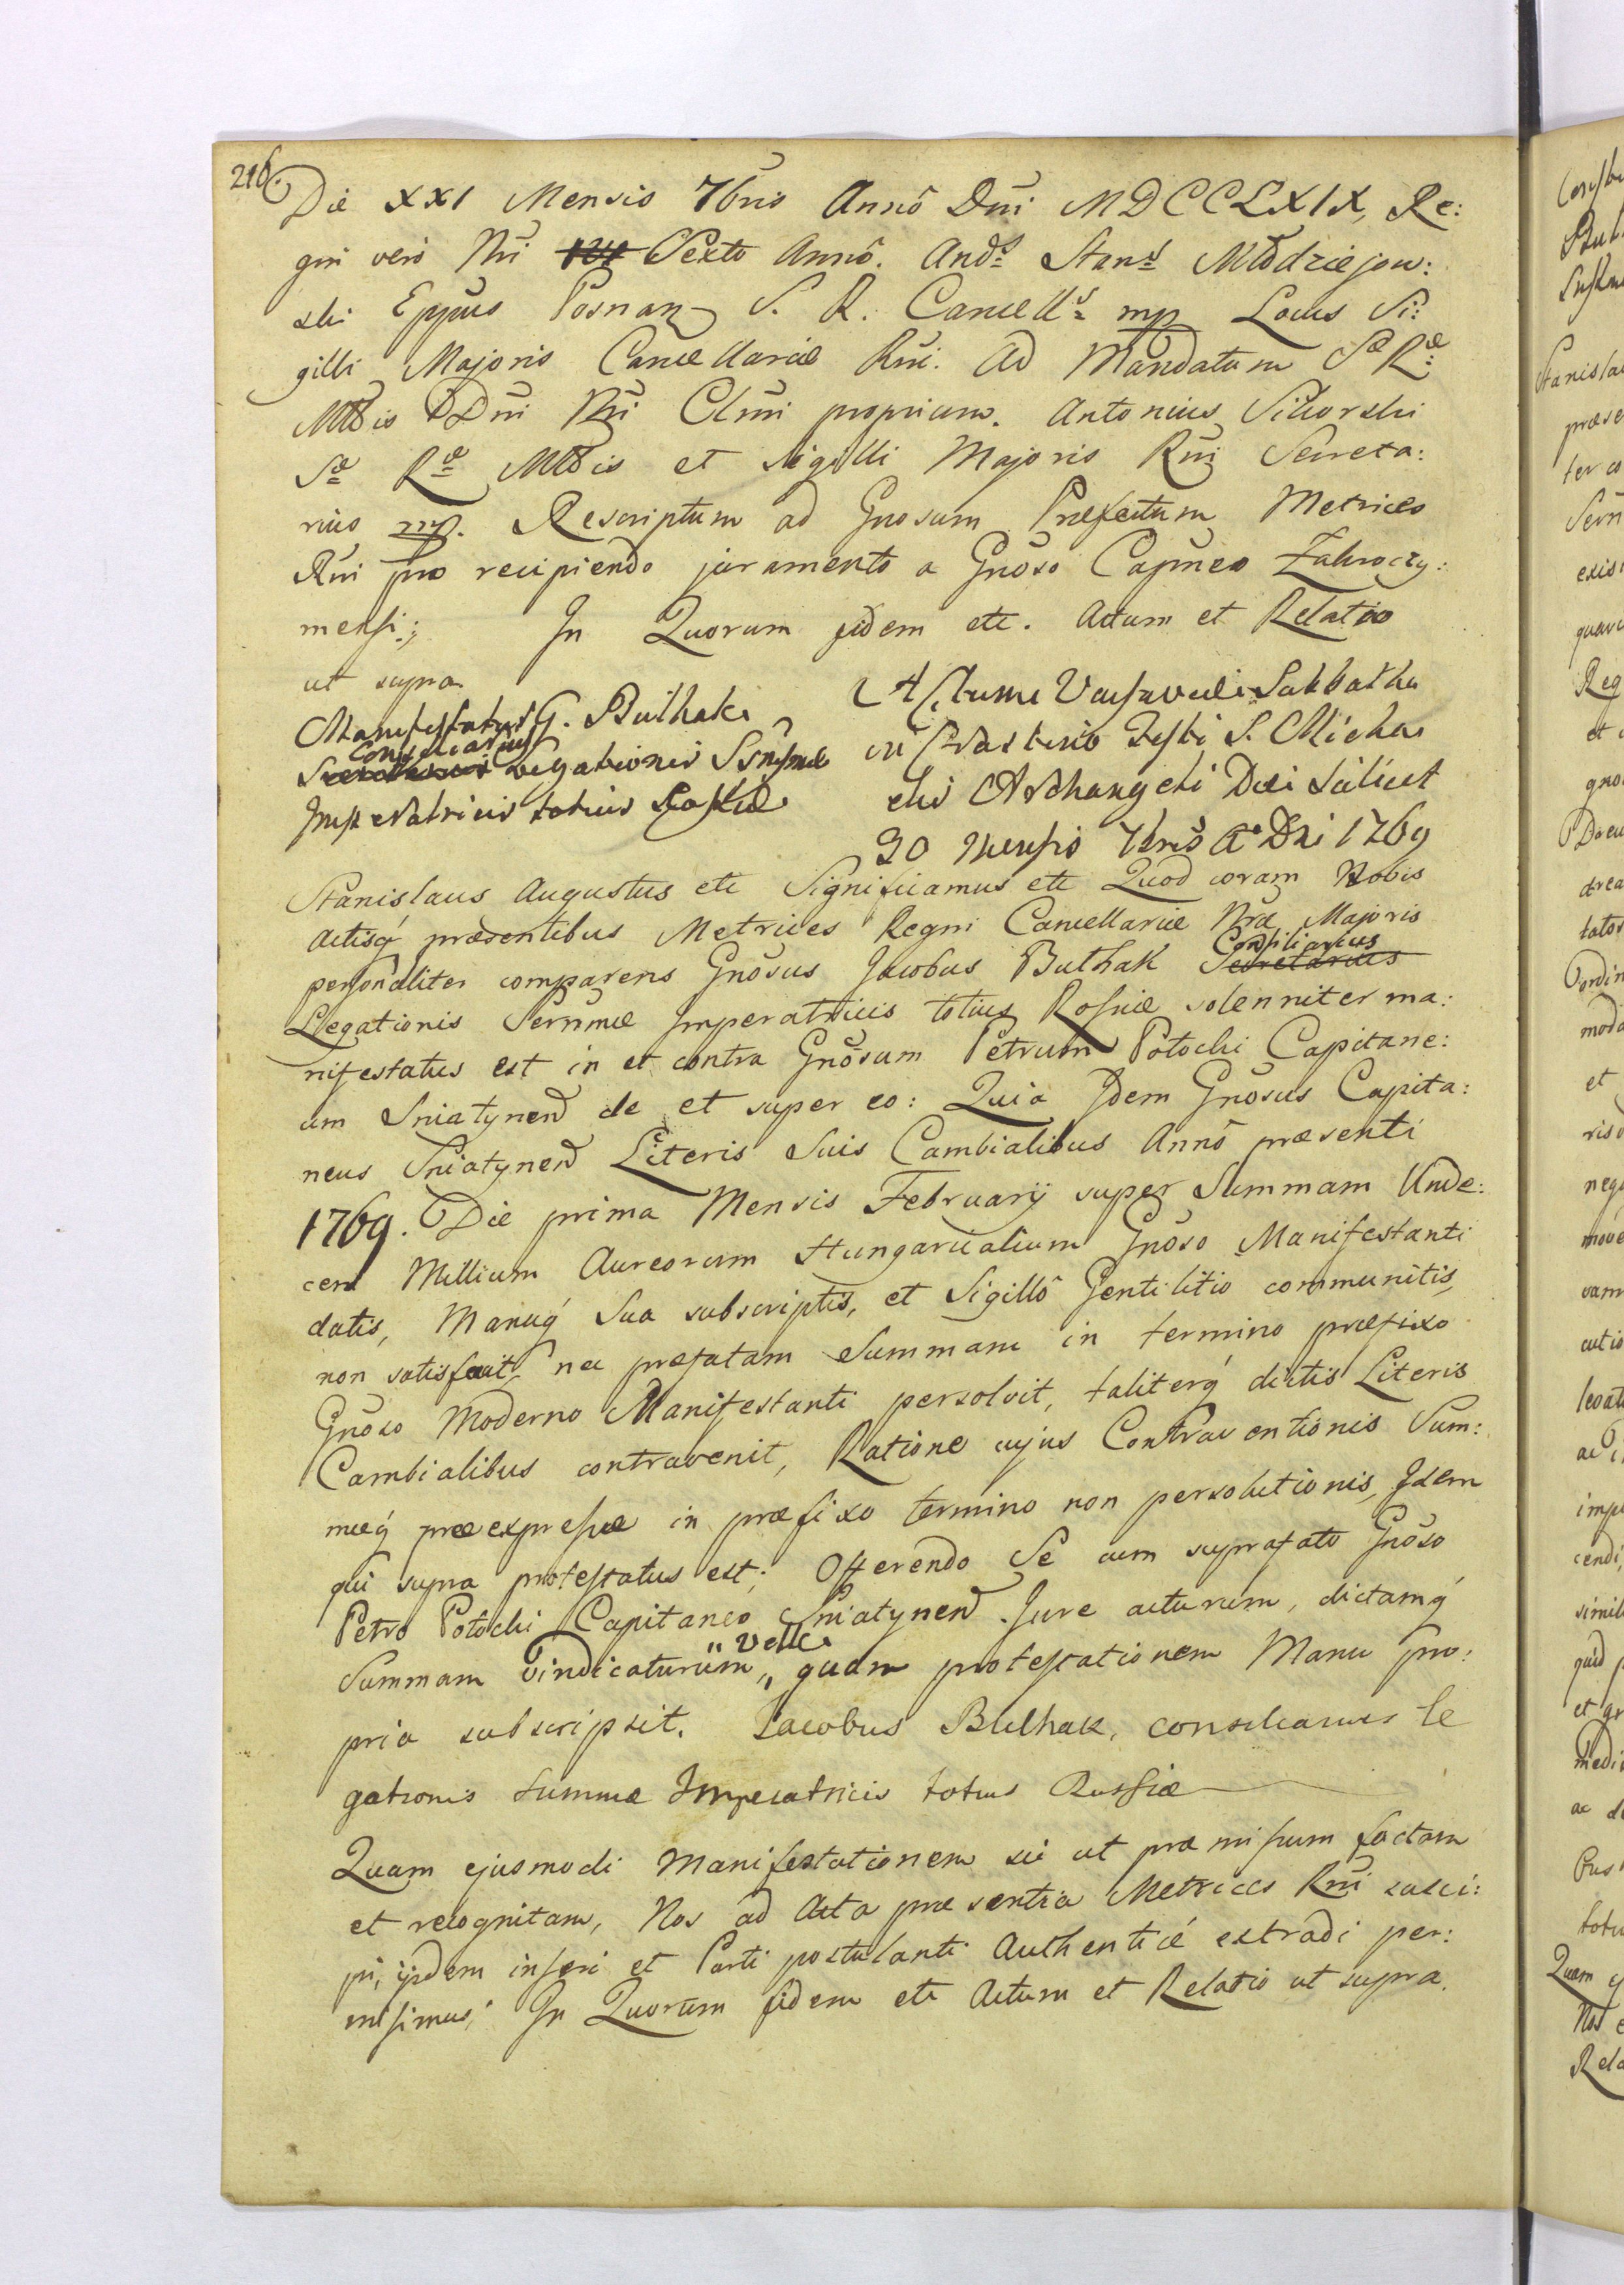 216.
Die XXI Mensis 7bris Annô Dni MDCCLXIX, Re:
gni vero Nri Sexto Annô. Andˢ Stanˢ Młodziejow:
ski Eppus Posnan S. R. Cancellˢ mp Locus Si:
gilli Majoris Cancellariæ Rni. Ad Mandatum Sæ Ræ
Mttis DDni Nri Clmi proprium. Antonius Sikorski
Sæ Ræ Mttis et Sigilli Majoris Rni Secreta:
rius mp. Rescriptum ad Gnosum Præfectum Metrices
Rni pro recipiendo juramento a Gnoso Capneo Zakroczy:
mensi; In Quorum fidem etc. Actum et Relatio
ut supra
Manifestatur G. Bulhak
Consiliarius
Secretarius Legationis Ssnismæ
Imperatricis totius Rossiæ
Actum Varsaviæ Sabbatho
in Crastino Festi S. Micha
elis Archangeli Die scilicet
30 Mensis 7bris Aº Dni 1769
Stanislaus Augustus etc Significamus etc Quod coram Nobis
Actisq́ præsentibus Metrices Regni Cancellariæ Nræ Majoris
Consiliarius
personaliter comparens Gnosus Jacobus Bulhak Secretarius
Legationis Sernmæ Imperatricis totius Rossiæ solenniter ma:
nifestatus est in et contra Gnosum Petrum Potocki Capitane:
um Sniatynen de et super eo: Quia Idem Gnosus Capita:
neus Sniatynen Literis Suis Cambialibus Annô præsenti
1769. Die prima Mensis February super Summam Unde:
cem Millium Aureorum Hungaricalium Gnoso Manifestanti
datis, Manuq́ Sua subscriptis, et Sigillô Gentilitio communitis,
non satisfecit, nec præfatam Summam in termino præfixo
Gnoso Moderno Manifestanti persolvit, taliterq́ dictis Literis
Cambialibus contravenit, Ratione cujus Contraventionis Sum:
mæq́ præexpressæ in præfixo termino non persolutionis, Idem
qui supra protestatus est; Offerendo Se cum suprafato Gnoso
Petro Potocki Capitaneo Sniatynen Jure acturum, dictamq́
" Velle
Summam vindicaturum,, quam protestationem Manu pro:
pria subscripsit. Jacobus Bulhak, consiliarius le
gationis summæ Imperatricis totius Russiæ
Quam ejusmodi Manifestationem sic ut præmissum factam
et recognitam, Nos ad Acta præsentia Metrices Rni susci:
pi, ijsdem inseri et Parti postulanti Authenticé extradi per:
misimus; In Quorum fidem etc Actum et Relatio ut supra.